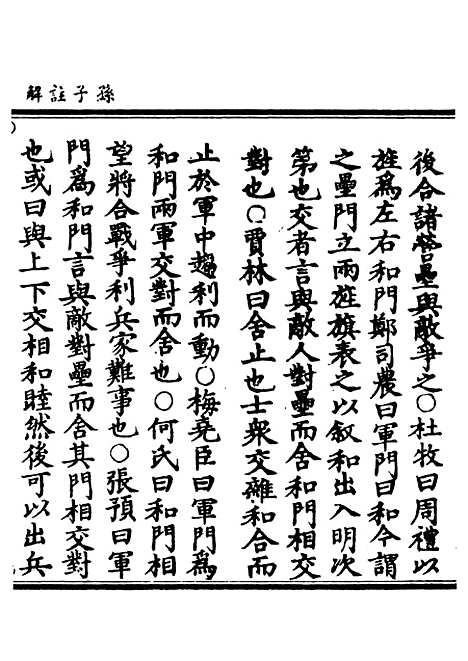 孫子註解
後合諸營壘與敵爭之○杜牧曰周禮以
旌爲左右和門鄭司農曰軍門曰和今謂
之壘門立兩旌旗表之以叙和出入明次
第也交者言與敵人對壘而舍和門相交
對也○賈林曰舍止也士衆交雜和合而
止於軍中趨利而動○梅堯臣曰軍門爲
和門兩軍交對而舍也○何氏曰和門相
望將合戰爭利兵家難事也○張預曰軍
門爲和門言與敵對壘而舍其門相交對
也或曰與上下交相和睦然後可以出兵